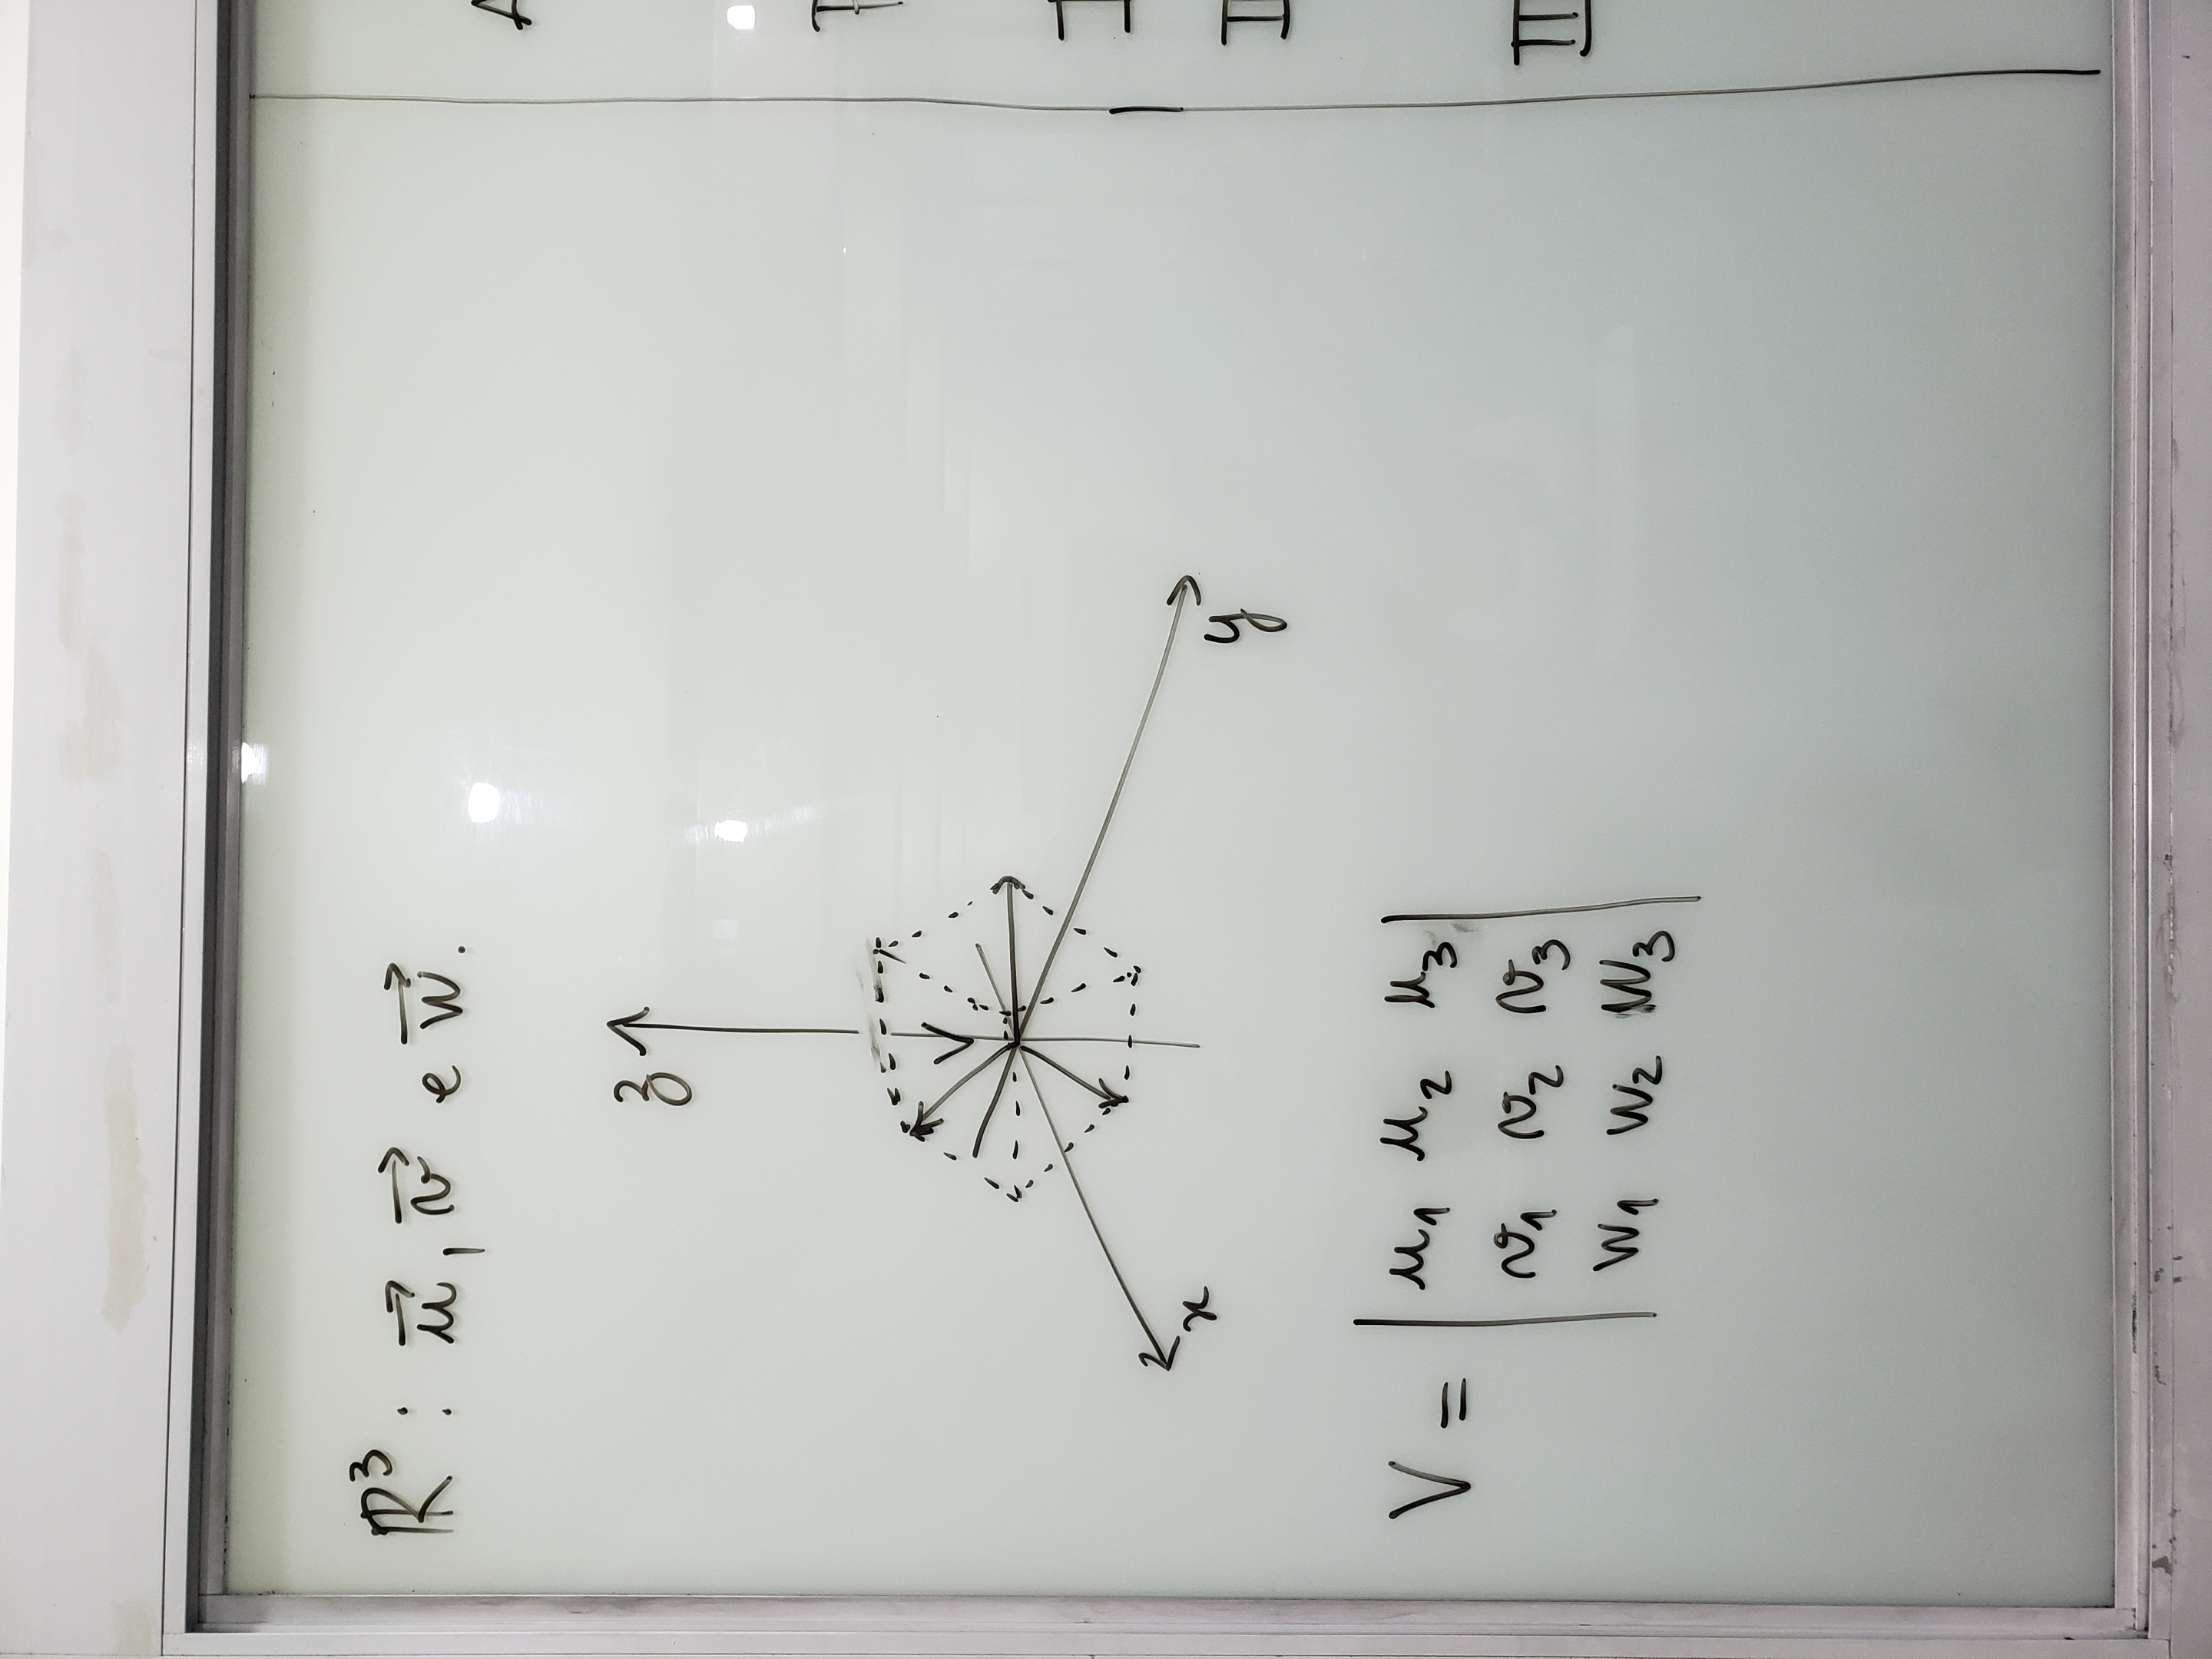 ℝ³: u⃗, v⃗ e w⃗.
z
V
x
y
V = | u₁ u₂ u₃ |
| v₁ v₂ v₃ |
| w₁ w₂ w₃ |